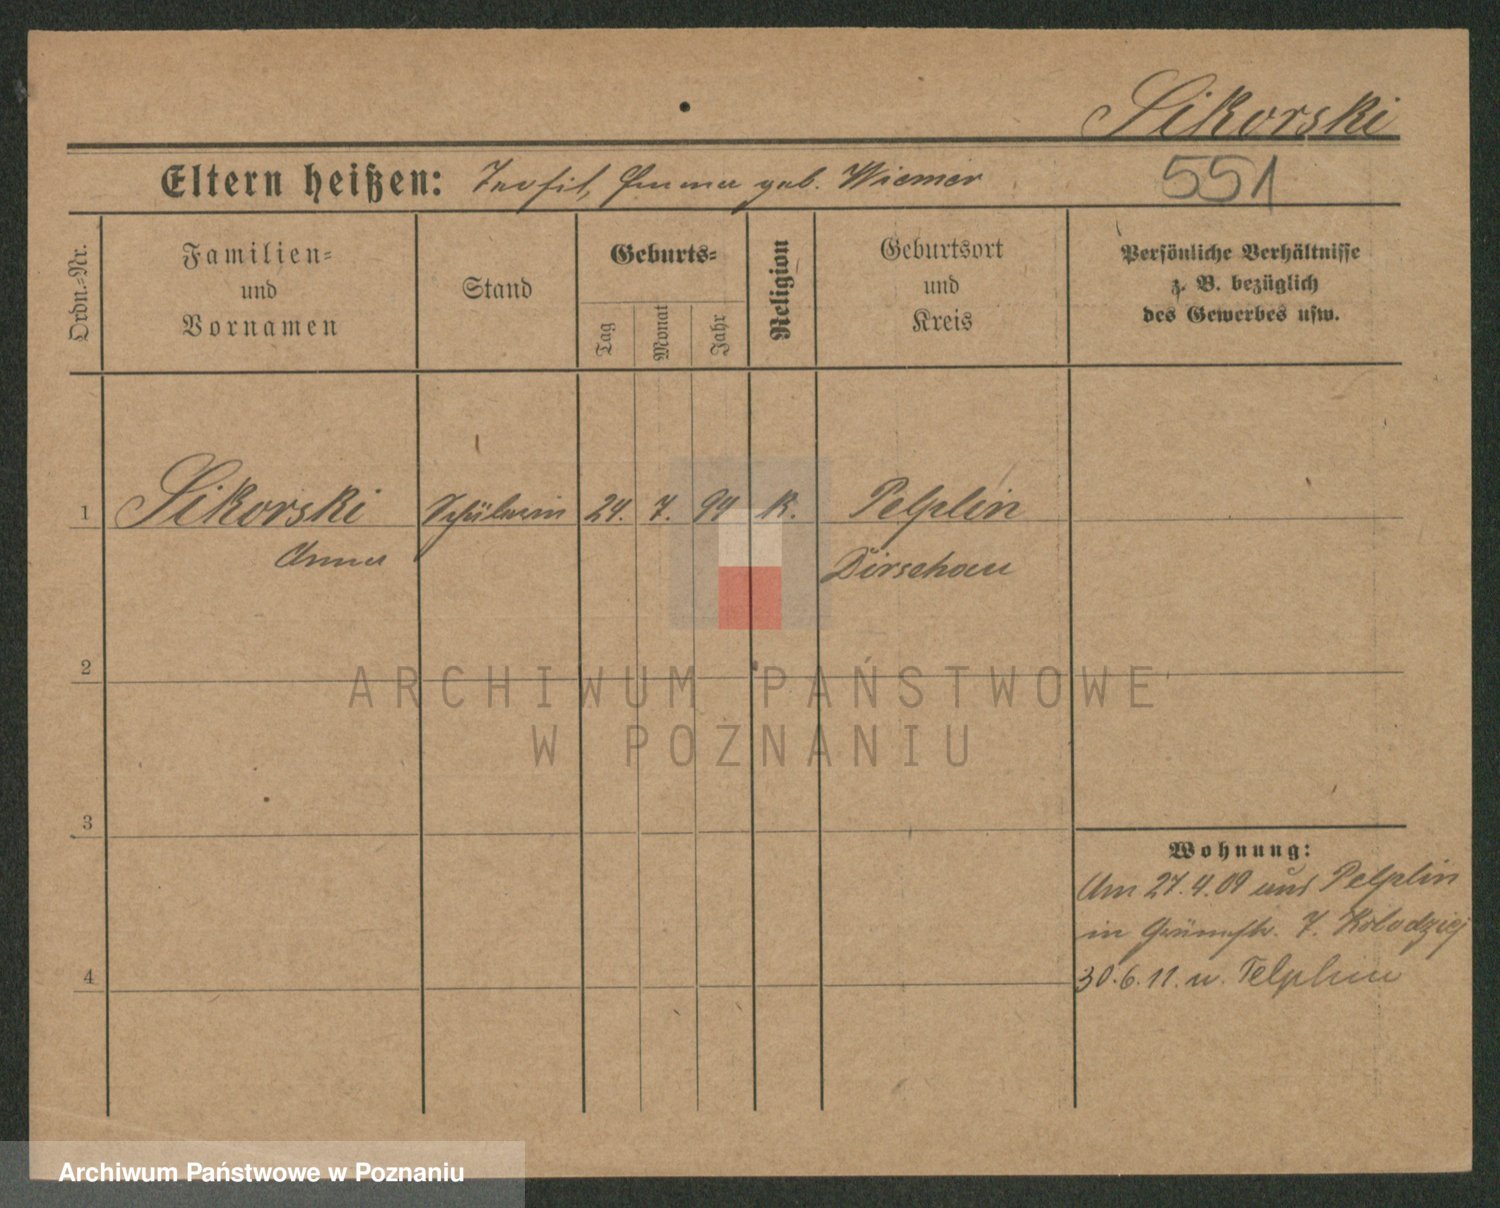 Sikorski
Eltern heißen: Teofil, Emma geb. Wiemer
551
Ordn.-Nr.
Familien-
und
Vornamen
Stand
Geburts-
Tag
Monat
Jahr
Religion
Geburtsort
und
Kreis
Persönliche Verhältnisse
z. B. bezüglich
des Gewerbes usw.
1 Sikorski Schülerin 24. 7. 94 K. Pelplin
Anna Dirschau
ARCHIWUM PAŃSTWOWE
W POZNANIU
2
3
4
Wohnung:
Am 27.4.09 aus Pelplin
in 7. Kolodziej
30.6.11. n. Pelplin
Archiwum Państwowe w Poznaniu